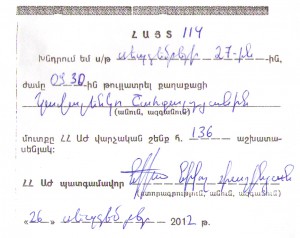 ՀԱՅՏ 114
Խնդրում եմ ս/թ սեպտեմբերի 27-ին -ին,
ժամը 09.30-ին թույլատրել քաղաքացի
(անուն, ազգանուն)
մուտքը ՀՀ ԱԺ վարչական շենք հ. 136 աշխատա-
սենյակ:
ՀՀ ԱԺ պատգամավոր
(ստորագրություն, անուն, ազգանուն)
«26» սեպտեմբեր 2012 թ.